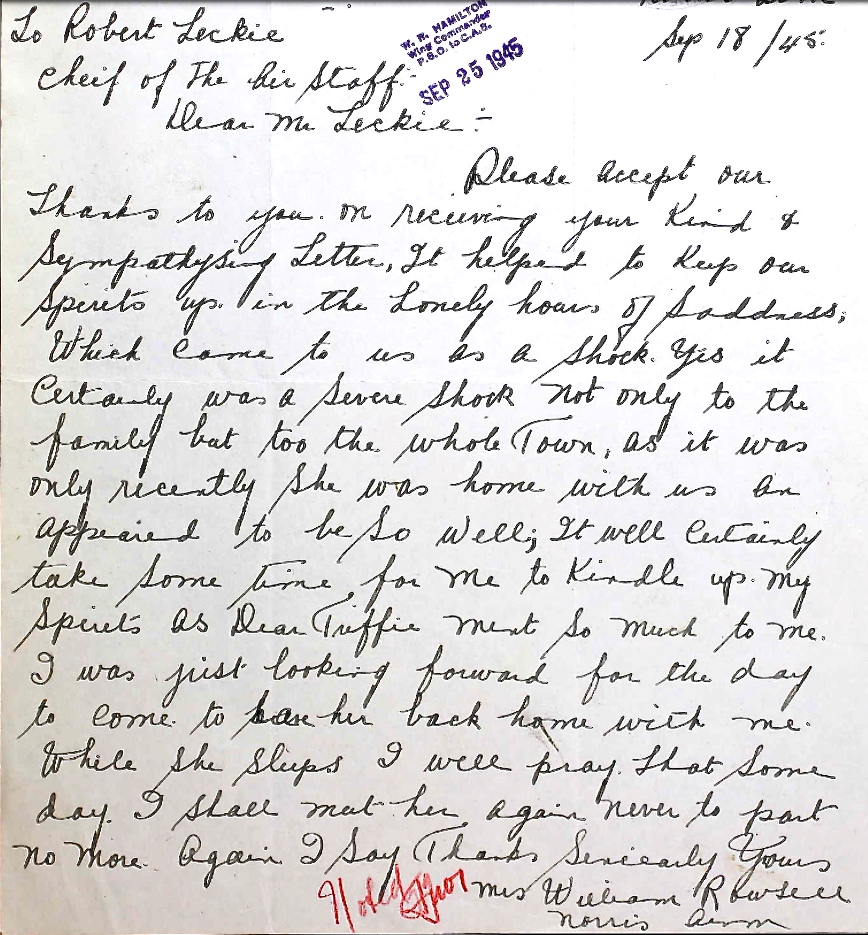 To Robert Leckie
W. R. HAMILTON
Wing Commander
P.S.O. to C.A.S.
SEP 25 1945
Sep 18/45.
Cheif of The Air Staff.
Dear Mr Leckie:-
Please accept our
Thanks to you. on recieving your Kind &
Sympathysing Letter, It helped to Keep our
Spirits up. in the Lonely hours of Saddness,
Which came to us as a Shock. Yes it
Certainly was a Severe Shock not only to the
family but too the whole Town, as it was
only recently She was home with us an
appeared to be So well; It well Certainly
take Some time for me to Kindle up. my
Spirits as Dear Triffie ment So much to me.
I was just looking forward for the day
to come. to her back home with me.
While She Sleeps I well pray. that Some
day. I shall meet her again never to part
no more. Again I Say Thanks Sincearly Yours
Noted
Mrs William Rowsell
Norris Arm